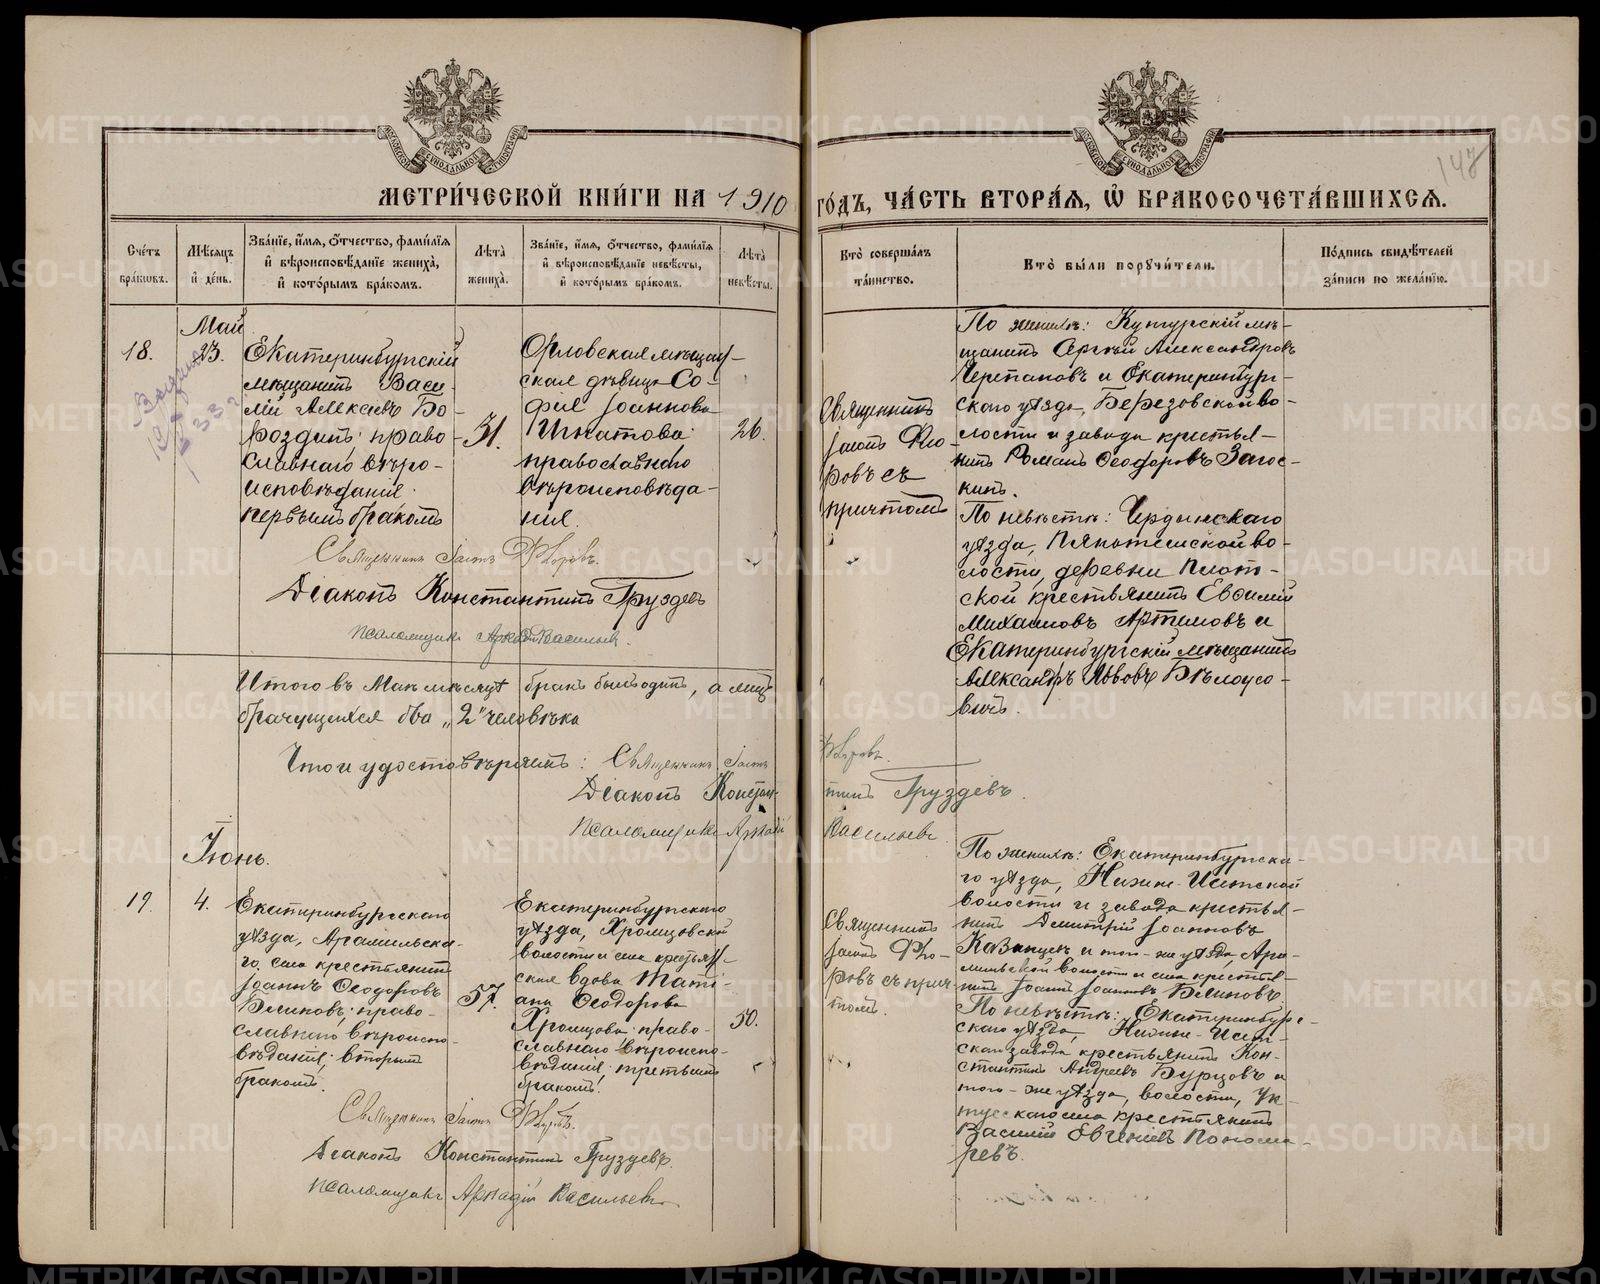 МЕТРИ́ЧЕСКОЙ КНИ́ГИ НА 1910 ГО́ДЪ, ЧА́СТЬ ВТОРА́Я, Ѡ҆ БРАКОСОЧЕТА́ВШИХСЯ.
147
Сче́тъ бра́кѡвъ.
Мѣ́сяцъ и҆ де́нь.
Зва́нїе, и҆́мя, ѻ҆́тчество, фами́лїя и҆ вѣроисповѣ́данїе жениха̀, и҆ кото́рымъ бра́комъ.
Лѣ́та жениха̀.
Зва́нїе, и҆́мя, ѻ҆́тчество, фами́лїя и҆ вѣроисповѣ́данїе невѣ́сты, и҆ кото́рымъ бра́комъ.
Лѣ́та невѣ́сты.
Кто̀ соверша́лъ та́инство.
Кто̀ бы́ли порꙋчи́тели.
По́дпись свидѣ́телей за́писи по жела́нїю.
18.
Май
23.
Екатеринбургскій
мѣщанинъ Васи-
лій Алексѣевъ Бо-
роздинъ; право-
славнаго вѣро-
исповѣданія
первымъ бракомъ
31.
Орловская мѣщан-
ская дѣвица Со-
фія Іоаннова
Игнатова
православнаго
вѣроисповѣда-
нія.
26.
Священникъ
Іоаннъ Фло-
ровъ съ
причтомъ
По женихѣ: Кунгурскій мѣ-
щанинъ Сергѣй Александровъ
Черепановъ и Екатеринбург-
скаго уѣзда, Березовской во-
лости и завода крестья-
нинъ Романъ Ѳеодоровъ Загос-
кинъ.
По невѣстѣ: Чердынскаго
уѣзда, волости, деревни
ской крестьянинъ Евѳимій
Михаиловъ Артемовъ и
Екатеринбургскій мѣщанинъ
Александръ Львовъ Бѣлоусо-
вичъ.
Священникъ Іоаннъ Флоровъ.
Діаконъ Константинъ Груздевъ
Псаломщикъ Аркадій Васильевъ.
Итого въ Маѣ мѣсяцѣ бракъ былъ одинъ, а лицъ
брачущихся два „2" человѣка
Что и удостовѣряемъ: Священникъ Іоаннъ Флоровъ.
Діаконъ Константинъ Груздевъ.
Псаломщикъ Аркадій Васильевъ
Іюнь.
19.
4.
Екатеринбургскаго
уѣзда, Арамильска-
го села крестьянинъ
Іоаннъ Ѳеодоровъ
Блиновъ; право-
славнаго вѣроиспо-
вѣданія; вторымъ
бракомъ.
57.
Екатеринбургскаго
уѣзда, Хромцовской
волости и села крестьян-
ская вдова Тати-
ана Ѳеодорова
Хромцова; право-
славнаго вѣроиспо-
вѣданія; третьимъ
бракомъ.
50.
Священникъ
Іоаннъ Фло-
ровъ съ прич-
томъ.
По женихѣ: Екатеринбургска-
го уѣзда, Нижне-Исетской
волости и завода крестья-
нинъ Димитрій Іоанновъ
Казанцевъ и того-же уѣзда, Ара-
мильской волости и села крестья-
нинъ Іоаннъ Іоанновъ Блиновъ.
По невѣстѣ: Екатеринбург-
скаго уѣзда, Нижне-Исет-
скаго завода крестьянинъ Кон-
стантинъ Андреевъ Бурцовъ и
того-же уѣзда, волости, Ук-
тусскаго села крестьянинъ
Василій Евгеніевъ Понома-
ревъ.
Священникъ Іоаннъ Флоровъ.
Діаконъ Константинъ Груздевъ.
Псаломщикъ Аркадій Васильевъ
METRIKI.GASO-URAL.RU